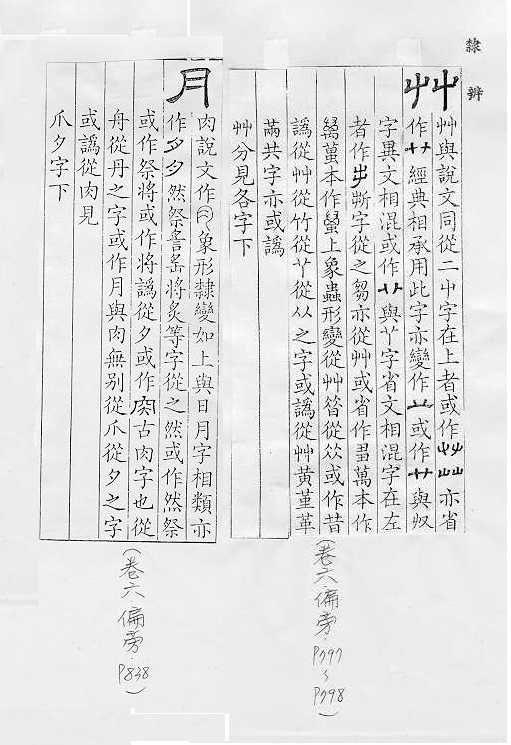 隸辨
艸
艸與說文同從二屮字在上者或作 亦省
作艹經典相承用此字亦變作䒑或作艹與収
字異文相混或作 與丫字省文相混字在左
者作 斯字從之芻亦從艸或省作 萬本作
萬本作蠆上象蟲形變從艸 從 或作昔
譌從艸從竹從丫從从之字或譌從艸黃堇革
萳共字亦或譌
艸分見各字下
(卷六偏旁·P797~P798)
月
肉說文作 象形隸變如上與日月字相類亦
作 然祭 䍃將炙等字從之然或作然祭
或作祭將或作將譌從夕或作 古肉字也從
舟從丹之字或作月與肉無別從爪從夕之字
或譌從肉見
爪夕字下
(卷六偏旁·P838)